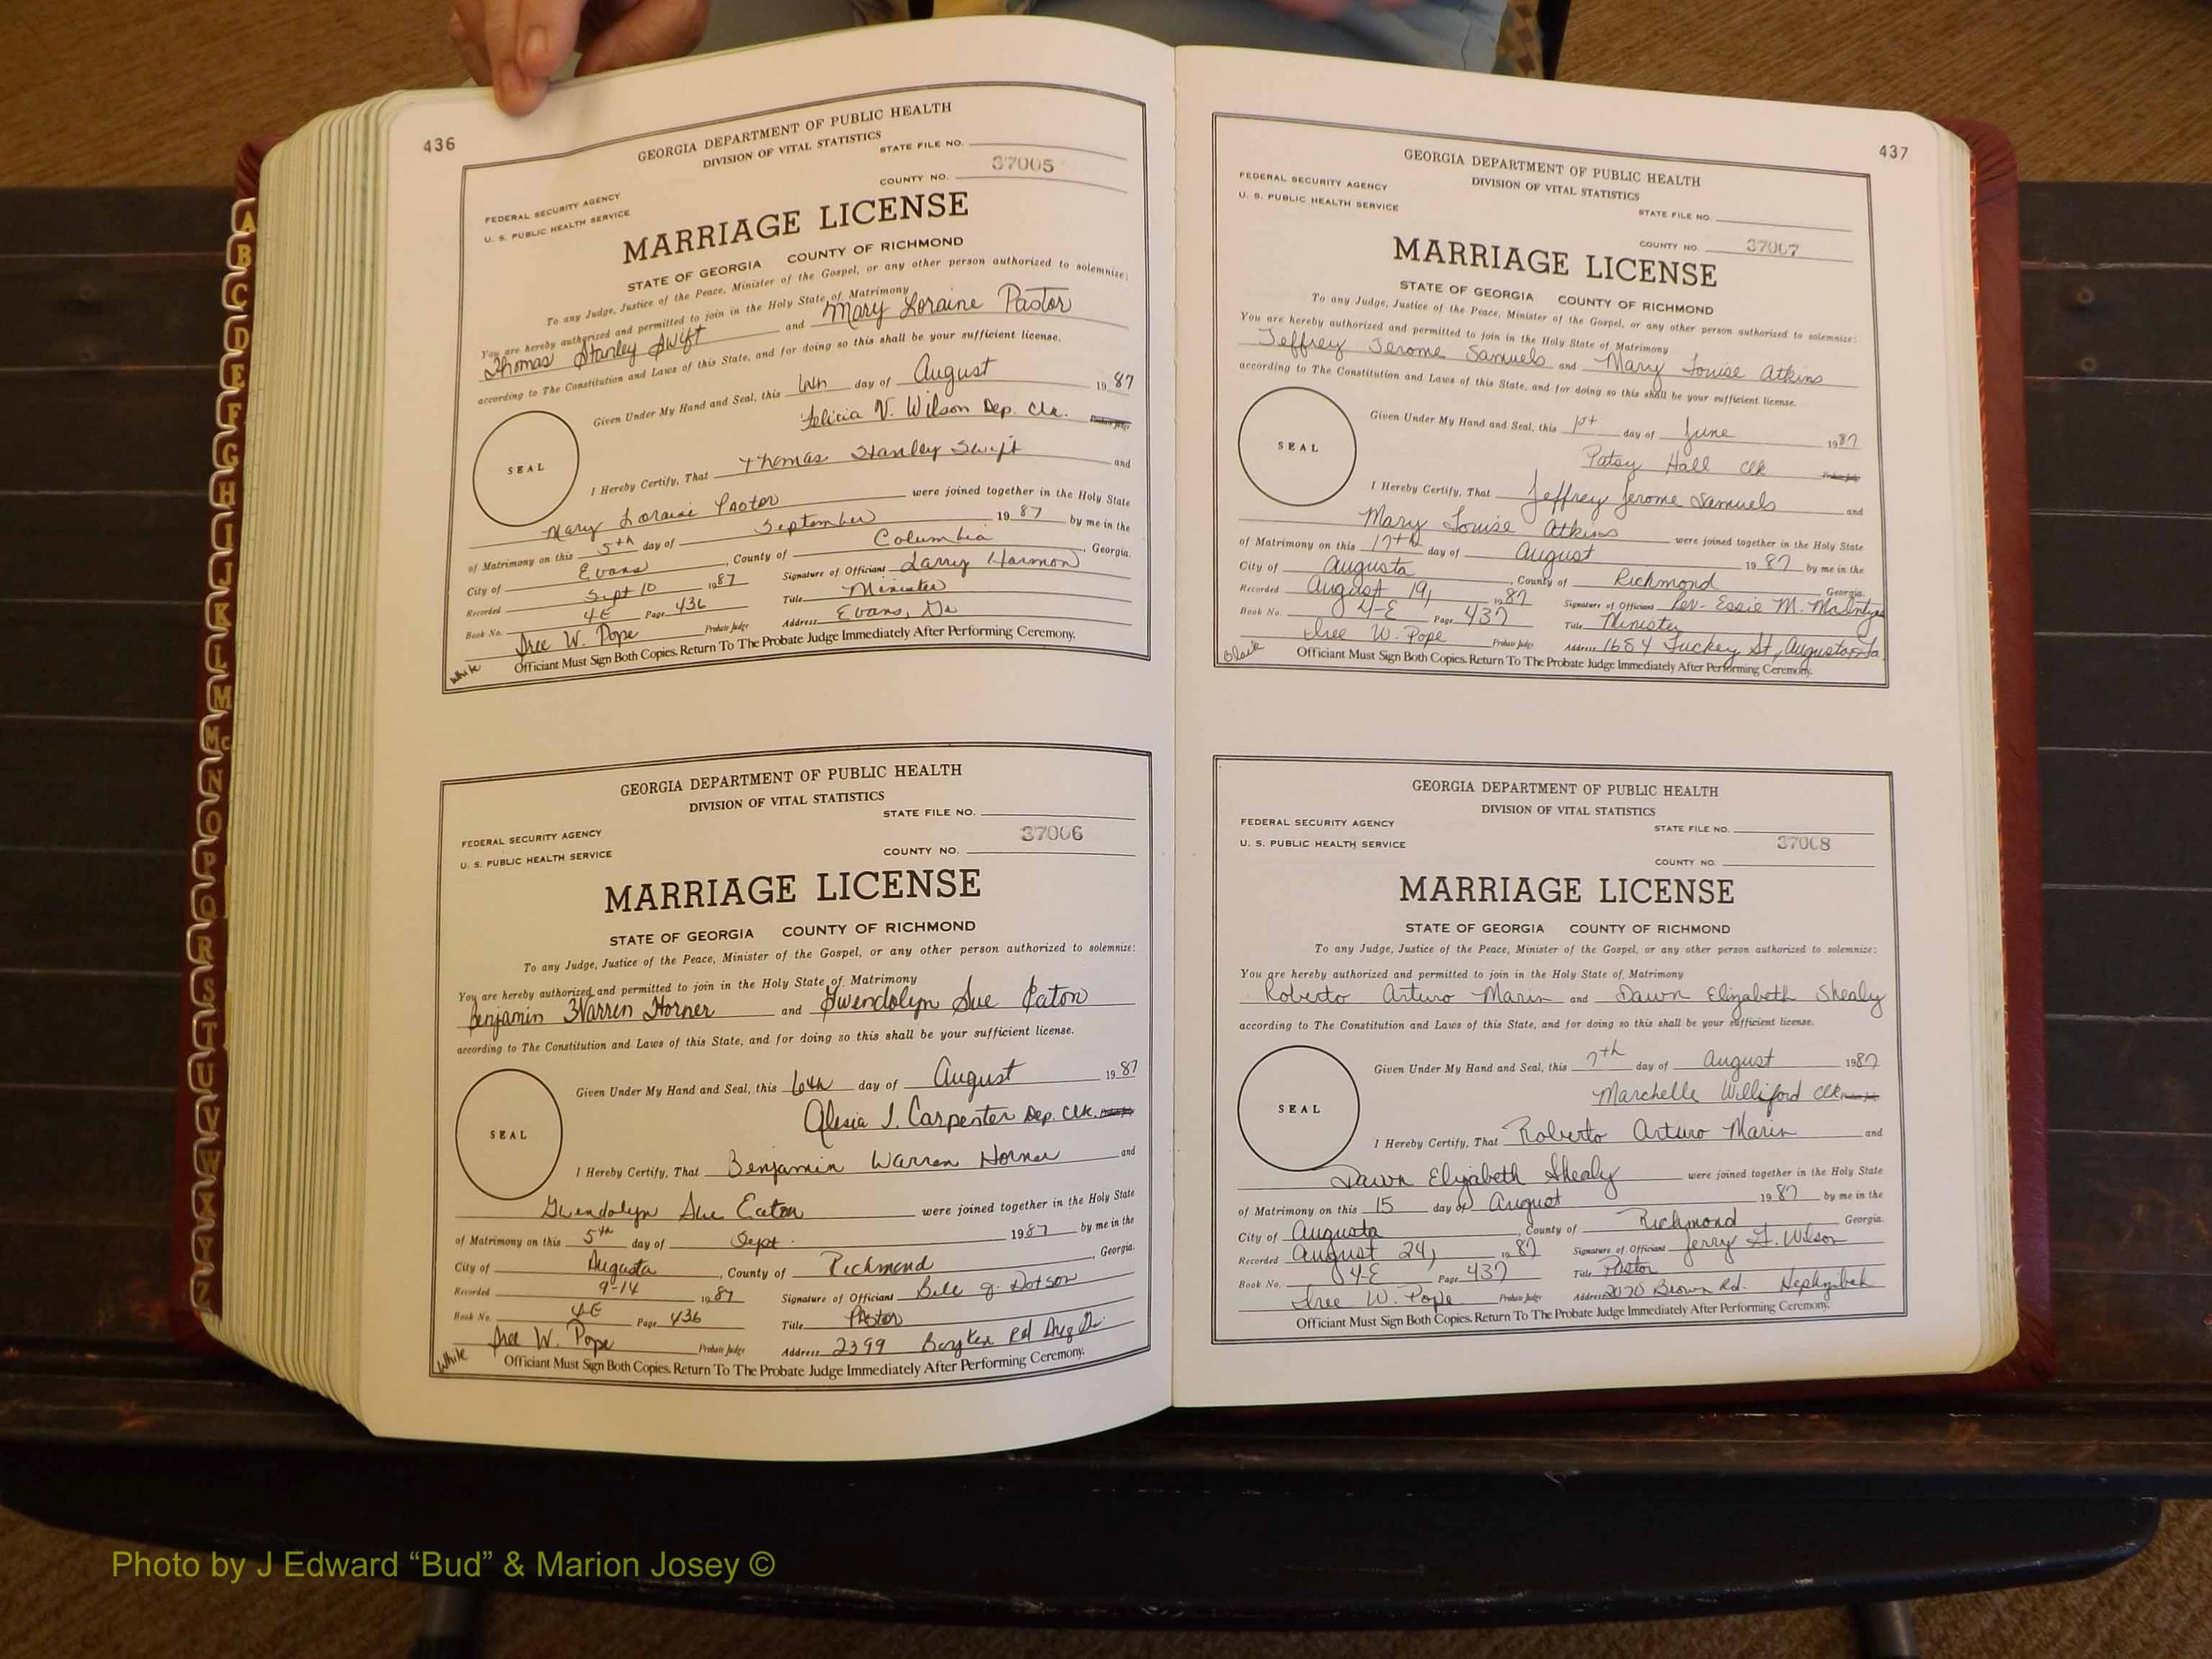 436
GEORGIA DEPARTMENT OF PUBLIC HEALTH
DIVISION OF VITAL STATISTICS
STATE FILE NO.
37005
COUNTY NO.
FEDERAL SECURITY AGENCY
U. S. PUBLIC HEALTH SERVICE
MARRIAGE LICENSE
STATE OF GEORGIA COUNTY OF RICHMOND
To any Judge, Justice of the Peace, Minister of the Gospel, or any other person authorized to solemnize:
You are hereby authorized and permitted to join in the Holy State of Matrimony
Thomas Stanley Swift and Mary Loraine Pastor
according to The Constitution and Laws of this State, and for doing so this shall be your sufficient license.
Given Under My Hand and Seal, this 6th day of August 1987
Felicia V. Wilson Dep. Clk. Probate Judge
SEAL
I Hereby Certify, That Thomas Stanley Swift and
Mary Loraine Pastor were joined together in the Holy State
of Matrimony on this 5th day of September 1987 by me in the
City of Evans, County of Columbia, Georgia.
Recorded Sept 10 1987 Signature of Officiant Larry Harmon
Book No. 4E Page 436 Title Minister
Iree W. Pope Probate Judge Address Evans, Ga
White
Officiant Must Sign Both Copies. Return To The Probate Judge Immediately After Performing Ceremony.
GEORGIA DEPARTMENT OF PUBLIC HEALTH
DIVISION OF VITAL STATISTICS
STATE FILE NO.
37006
FEDERAL SECURITY AGENCY
U. S. PUBLIC HEALTH SERVICE
COUNTY NO.
MARRIAGE LICENSE
STATE OF GEORGIA COUNTY OF RICHMOND
To any Judge, Justice of the Peace, Minister of the Gospel, or any other person authorized to solemnize:
You are hereby authorized and permitted to join in the Holy State of Matrimony
Benjamin Warren Horner and Gwendolyn Sue Eaton
according to The Constitution and Laws of this State, and for doing so this shall be your sufficient license.
Given Under My Hand and Seal, this 6th day of August 1987
Alesia J. Carpenter Dep. Clk. Probate Judge
SEAL
I Hereby Certify, That Benjamin Warren Horner and
Gwendolyn Sue Eaton were joined together in the Holy State
of Matrimony on this 5th day of Sept. 1987 by me in the
City of Augusta, County of Richmond, Georgia.
Recorded 9-14 1987 Signature of Officiant Bill J. Dotson
Book No. 4E Page 436 Title Pastor
Iree W. Pope Probate Judge Address 2399 Boykin Rd Aug Ga.
White
Officiant Must Sign Both Copies. Return To The Probate Judge Immediately After Performing Ceremony.
437
GEORGIA DEPARTMENT OF PUBLIC HEALTH
DIVISION OF VITAL STATISTICS
FEDERAL SECURITY AGENCY
U. S. PUBLIC HEALTH SERVICE
STATE FILE NO.
COUNTY NO. 37007
MARRIAGE LICENSE
STATE OF GEORGIA COUNTY OF RICHMOND
To any Judge, Justice of the Peace, Minister of the Gospel, or any other person authorized to solemnize:
You are hereby authorized and permitted to join in the Holy State of Matrimony
Jeffrey Jerome Samuels and Mary Louise Atkins
according to The Constitution and Laws of this State, and for doing so this shall be your sufficient license.
Given Under My Hand and Seal, this 1st day of June 1987
Patsy Hall Clk Probate Judge
SEAL
I Hereby Certify, That Jeffrey Jerome Samuels and
Mary Louise Atkins were joined together in the Holy State
of Matrimony on this 17th day of August 1987 by me in the
City of Augusta, County of Richmond Georgia.
Recorded August 19, 1987 Signature of Officiant Rev. Essie M. McIntyre
Book No. 4-E Page 437 Title Minister
Iree W. Pope Probate Judge Address 1654 Tuckey St, Augusta, Ga.
Black
Officiant Must Sign Both Copies. Return To The Probate Judge Immediately After Performing Ceremony.
GEORGIA DEPARTMENT OF PUBLIC HEALTH
DIVISION OF VITAL STATISTICS
FEDERAL SECURITY AGENCY
STATE FILE NO.
U. S. PUBLIC HEALTH SERVICE
37008
COUNTY NO.
MARRIAGE LICENSE
STATE OF GEORGIA COUNTY OF RICHMOND
To any Judge, Justice of the Peace, Minister of the Gospel, or any other person authorized to solemnize:
You are hereby authorized and permitted to join in the Holy State of Matrimony
Roberto Arturo Marin and Dawn Elizabeth Shealy
according to The Constitution and Laws of this State, and for doing so this shall be your sufficient license.
Given Under My Hand and Seal, this 7th day of August 1987
Marchelle Williford Clk. Probate Judge
SEAL
I Hereby Certify, That Roberto Arturo Marin and
Dawn Elizabeth Shealy were joined together in the Holy State
of Matrimony on this 15 day of August 1987 by me in the
City of Augusta, County of Richmond Georgia.
Recorded August 24, 1987 Signature of Officiant Jerry F. Wilson
Book No. 4-E Page 437 Title Pastor
Iree W. Pope Probate Judge Address 2070 Brown Rd. Hephzibah
Officiant Must Sign Both Copies. Return To The Probate Judge Immediately After Performing Ceremony.
A
B
C
D
E
F
G
H
I
J
K
L
M
Mc
N
O
P
Q
R
S
T
U
V
W
X
Y
Z
Photo by J Edward “Bud” & Marion Josey ©